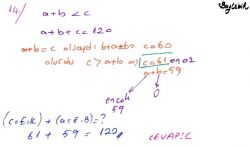 14.)
a+b < c
a+b+c=120
a+b=c olsaydı b+a+b c=60
olurdu c > a+b ⇒ c=61 en az
a+b=59
en çok
59
0
61 + 59 = 120
CEVAP: C